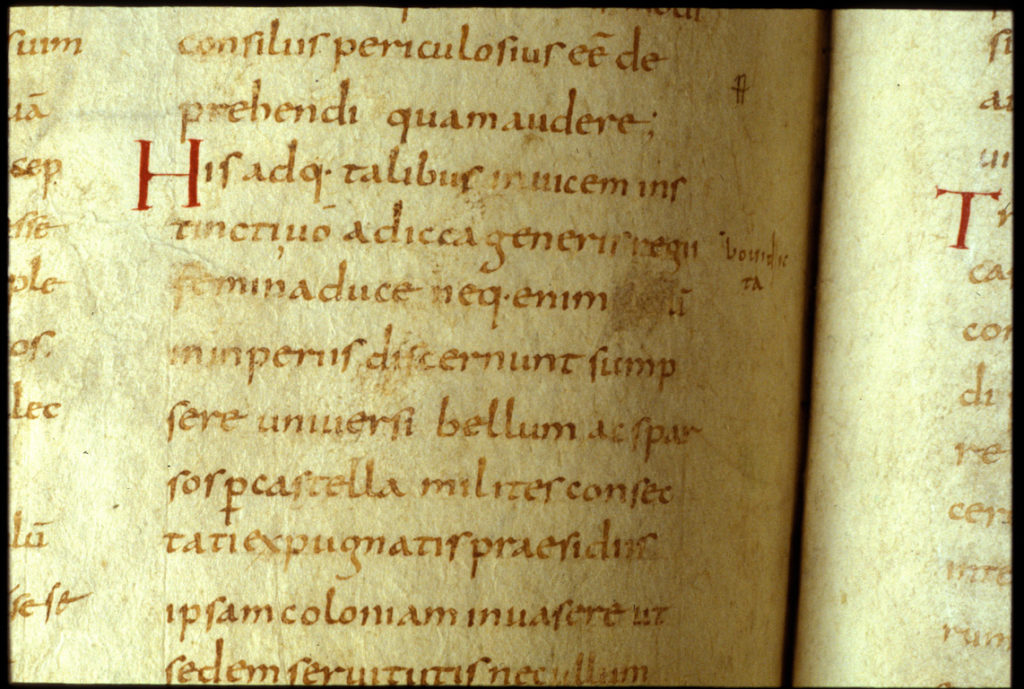 suim
uā
cep
esse
ple
os.
lec
lū
se se
consiliis periculosius eē de
prehendi quam audere;
His adq· talibus in uicem ins
tincti uō adicca generis regii
femina duce neq· enim
in inperiis discernunt sump
sere uniuersi bellum ac spar
sos p castella milites consec
tati expugnatis praesidiis
ipsam coloniam inuasere ut
sedem seruitutis nec ullum
bouidic
ta
T
ca
con
di
re
cer
inte
rum